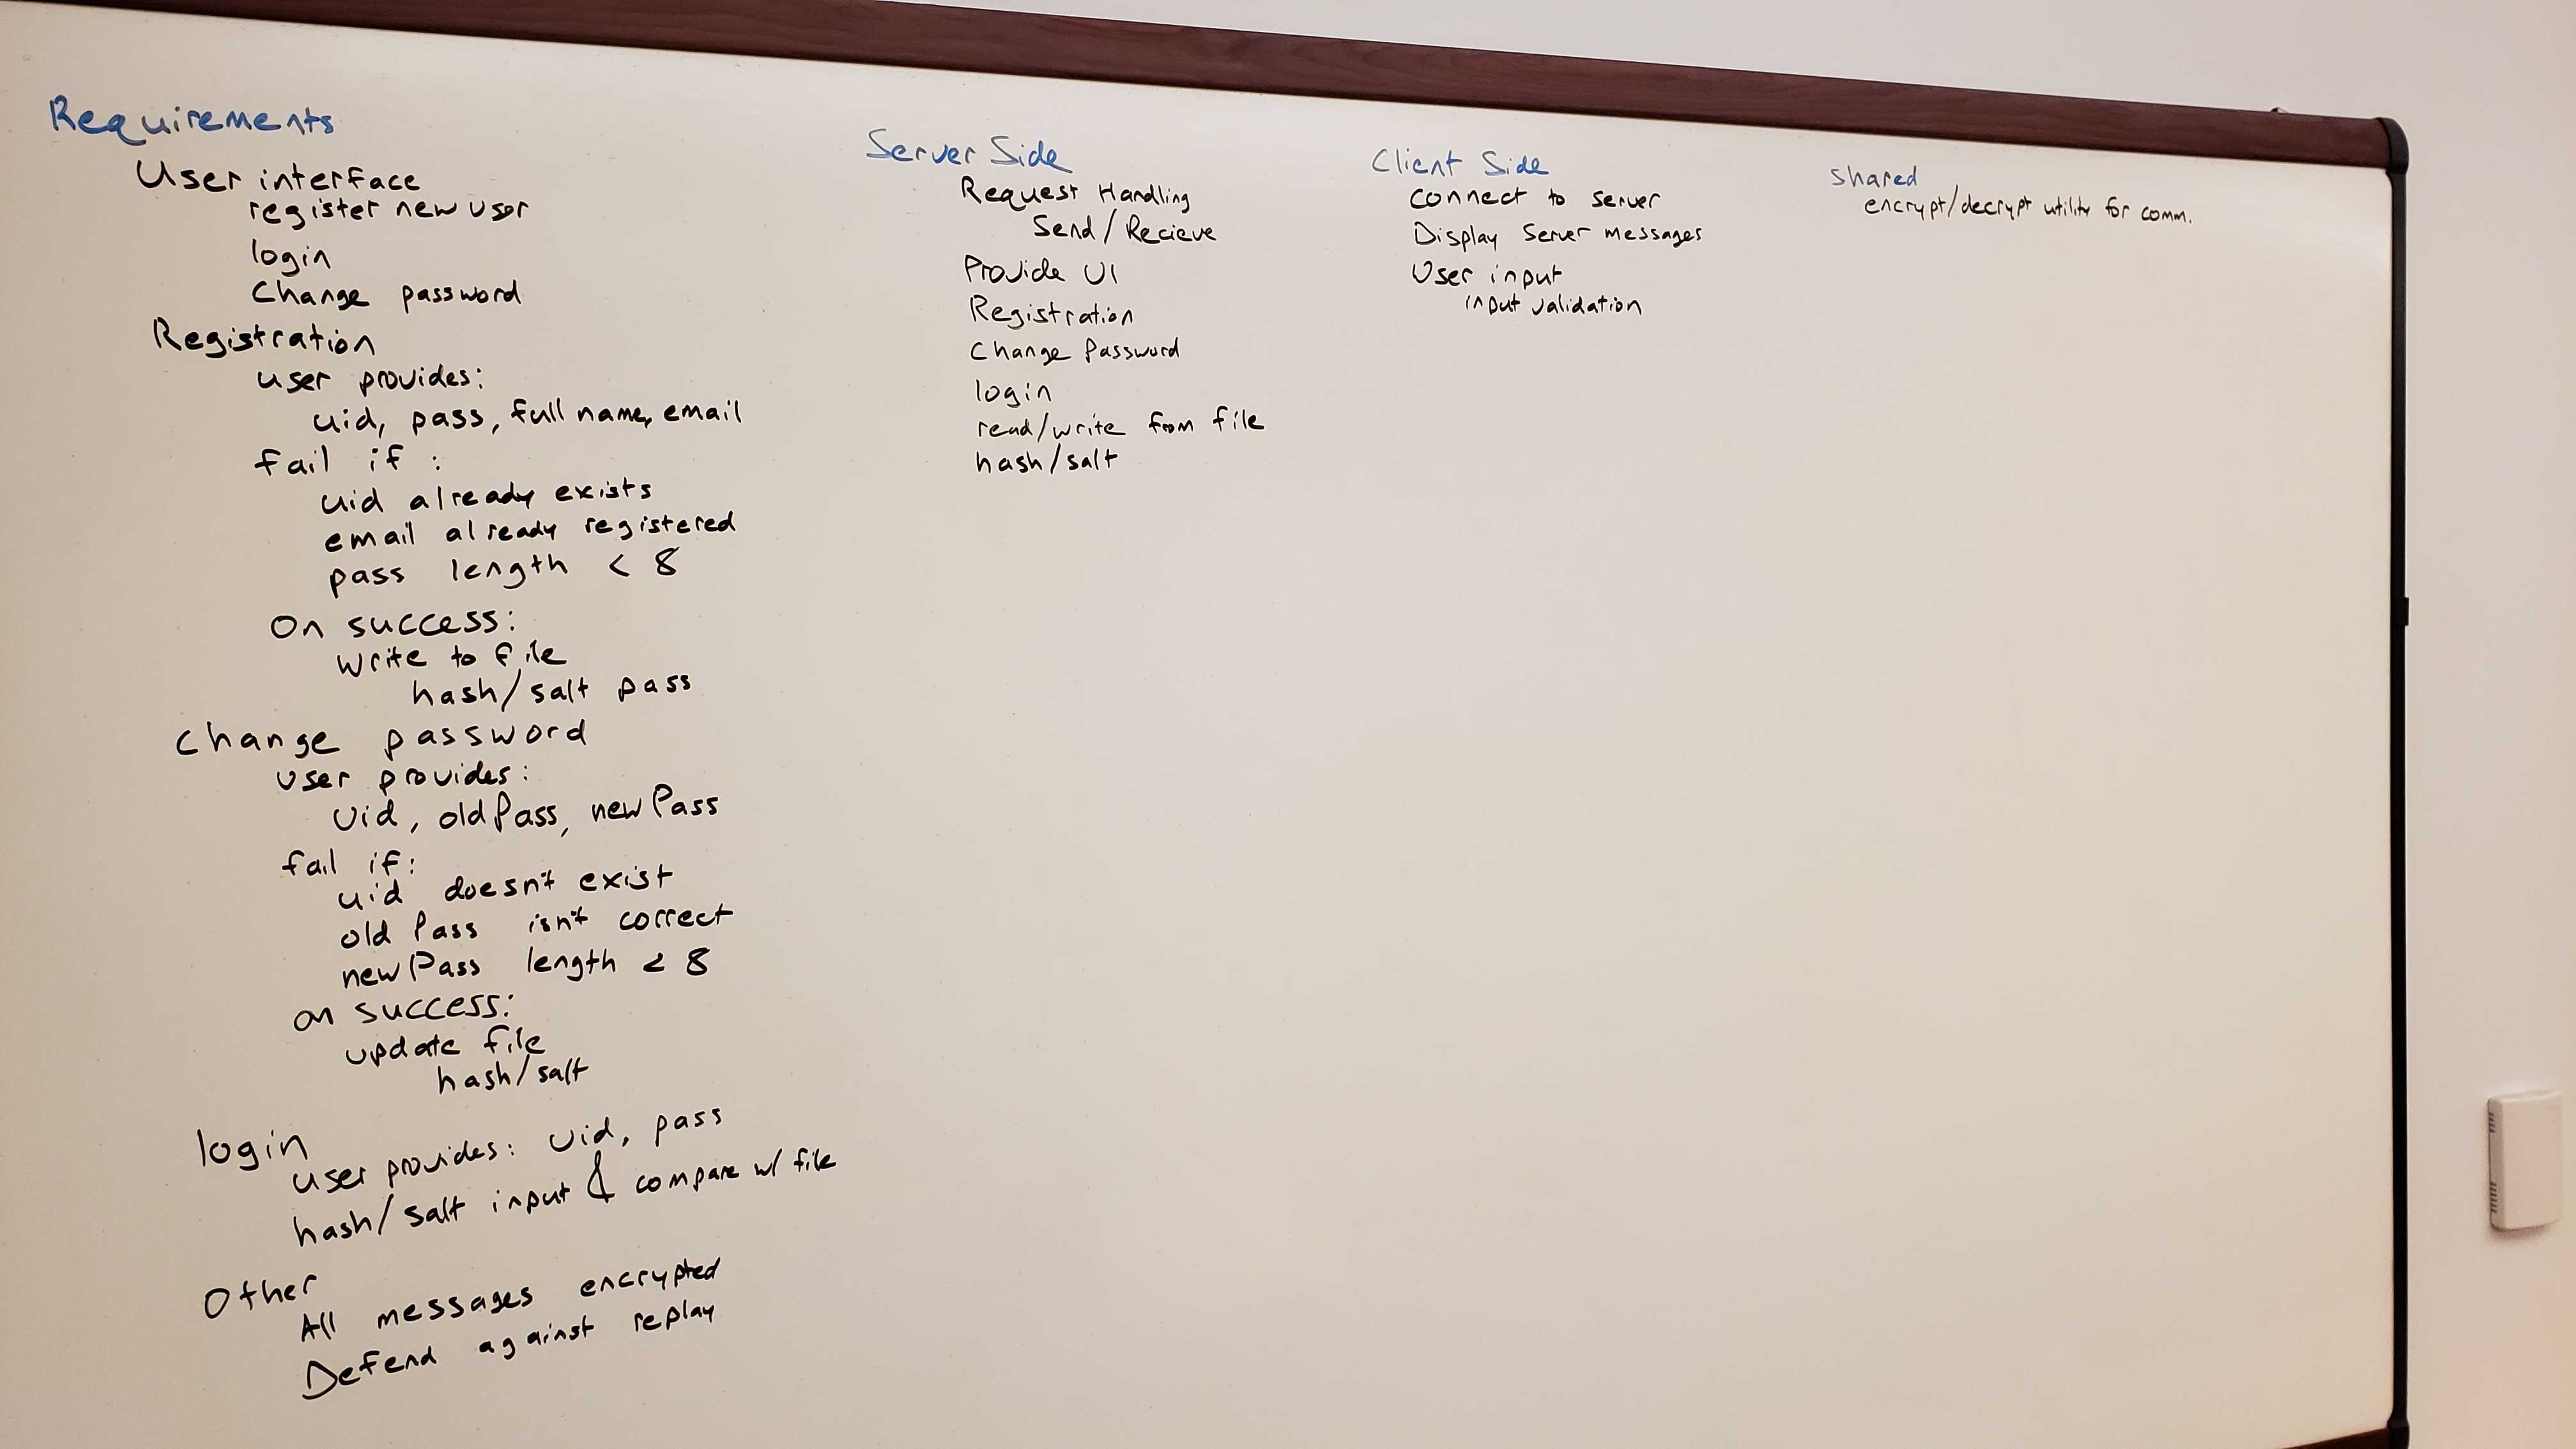 Requirements
User interface
register new user
login
Change password
Registration
user provides:
uid, pass, full name, email
fail if :
uid already exists
email already registered
pass length < 8
On success:
write to file
hash/salt pass
change password
user provides:
uid, oldPass, newPass
fail if:
uid doesn't exist
oldPass isn't correct
newPass length < 8
on success:
update file
hash/salt
login
user provides: uid, pass
hash/salt input & compare w/ file
Other
All messages encrypted
Defend against replay
Server Side
Request Handling
Send/Recieve
Provide UI
Registration
Change Password
login
read/write from file
hash/salt
Client Side
connect to server
Display Server messages
User input
input validation
shared
encrypt/decrypt utility for comm.